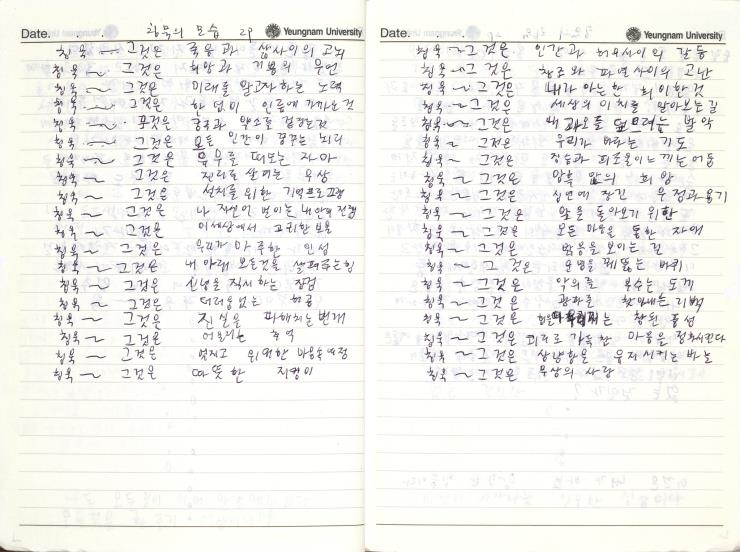 Date. . . 침묵의 모습 2P Yeungnam University
침묵 ~ 그것은 죽음과 삶사이의 고뇌
침묵 ~ 그것은 희망과 기쁨의 우연
침묵 ~ 그것은 미래를 알고자하는 노력
침묵 ~ 그것은 한 덩이 인륜에 가까운것
침묵 ~ 그것은 약소를
침묵 ~ 그것은 모든 인간이 꿈꾸는
침묵 ~ 그것은 떠보는 자아
침묵 ~ 그것은 진리를 살피는 우상
침묵 ~ 그것은 설치를 위한 기억프로그램
침묵 ~ 그것은 나 자신이 보이는 내면의
침묵 ~ 그것은 이세상에서 고귀한 보물
침묵 ~ 그것은 우리가 마주한 인성
침묵 ~ 그것은 내 아래 모든것을 살펴주는힘
침묵 ~ 그것은 신념을 직시하는 장점
침묵 ~ 그것은 더러움없는 허공
침묵 ~ 그것은 진실을 파헤치는 번개
침묵 ~ 그것은 어울리는 추억
침묵 ~ 그것은 멋지고 위대한 마음속 여정
침묵 ~ 그것은 따뜻한 지팡이
Date. Yeungnam University
침묵 ~ 그것은 인간과 허무사이의 갈등
침묵 ~ 그것은 창조와 파멸사이의 고난
침묵 ~ 그것은 내가 아는한 희귀한것
침묵 ~ 그것은 세상의 이치를 알아보는길
침묵 ~ 그것은 내 과오를 덮으려는 발악
침묵 ~ 그것은 우리가 바라는 기도
침묵 ~ 그것은 짐승과 괴로움이 느끼는어둠
침묵 ~ 그것은 암흑 앞의 희망
침묵 ~ 그것은 심연에 잠긴 우정과용기
침묵 ~ 그것은 앞을 돌아보기 위함
침묵 ~ 그것은 모든 마음을 통한 자애
침묵 ~ 그것은 밝음을 보이는 길
침묵 ~ 그것은 운명을 꿰뚫는 바퀴
침묵 ~ 그것은 악의를 부수는 도끼
침묵 ~ 그것은 광야를 찾아내는 기백
침묵 ~ 그것은 참된 홍성
침묵 ~ 그것은 괴리로 가득한 마음을 정화시킨다
침묵 ~ 그것은 삼남항을 유지시키는 바늘
침묵 ~ 그것은 무상의 사랑